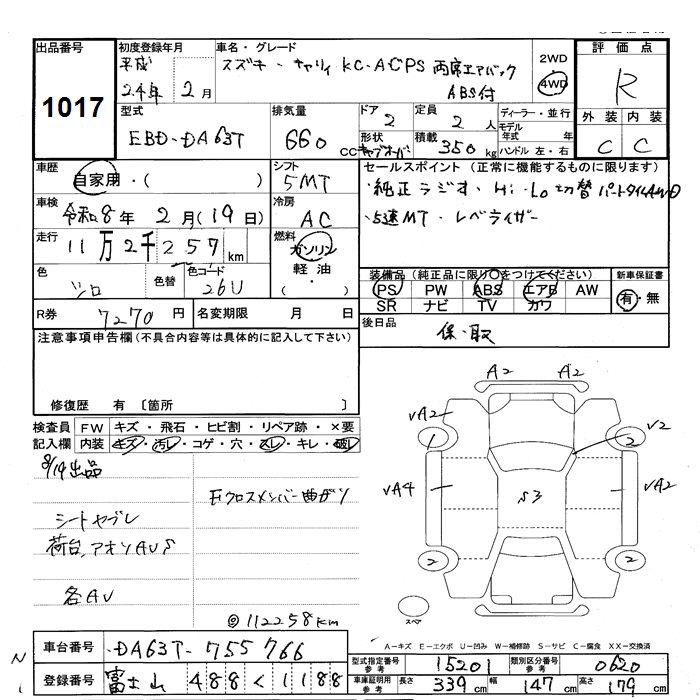 出品番号 初度登録年月 車名・グレード 2WD 評価点
1017 平成 24年 2月 スズキ・キャリィ KC・ACPS 両席エアバック ABS付 4WD R
型式 排気量 ドア 定員 ディーラー・並行 外装 内装
EBD-DA63T 660 cc 2 2人 モデル年式 年 C C
形状 積載 ハンドル 左・右
キャブオーバ 350kg
車歴 自家用・( ) シフト 5MT セールスポイント (正常に機能するものに限ります)
・純正ラジオ・Hi-Lo切替パートタイム4WD
車検 令和8年 2月(19日) 冷房 AC ・5速MT・レベライザー
走行 11万2千257km 燃料 ガソリン 軽油 ( ・ )
装備品(純正品に限り○をつけてください) 新車保証書
色 シロ 色替 色コード 26U PS PW ABS エアB AW 有・無
SR ナビ TV カワ
R券 7270円 名変期限 月 日 後日品 保・取
注意事項申告欄 (不具合内容等は具体的に記入して下さい)
修復歴 有 [箇所 ]
検査員 FW キズ・飛石・ヒビ割・リペア跡・×要
記入欄 内装 キズ・汚レ・コゲ・穴・スレ・キレ・破レ
8/19出品
Fクロスメンバー曲がり
シートヤブレ
荷台、アオリAUS
各AU
◎112258km
A2 A2
vA2 v2
1 2
vA4 S3 vA2
2 2
スペア
A-キズ E-エクボ U-凹み W-補修跡 S-サビ C-腐食 XX-交換済
車台番号 DA63T-755766
型式指定番号 参考 15201 類別区分番号 参考 0620
登録番号 富士山 488く1188
車庫証明用 参考 長さ 339cm 幅 147cm 高さ 179cm